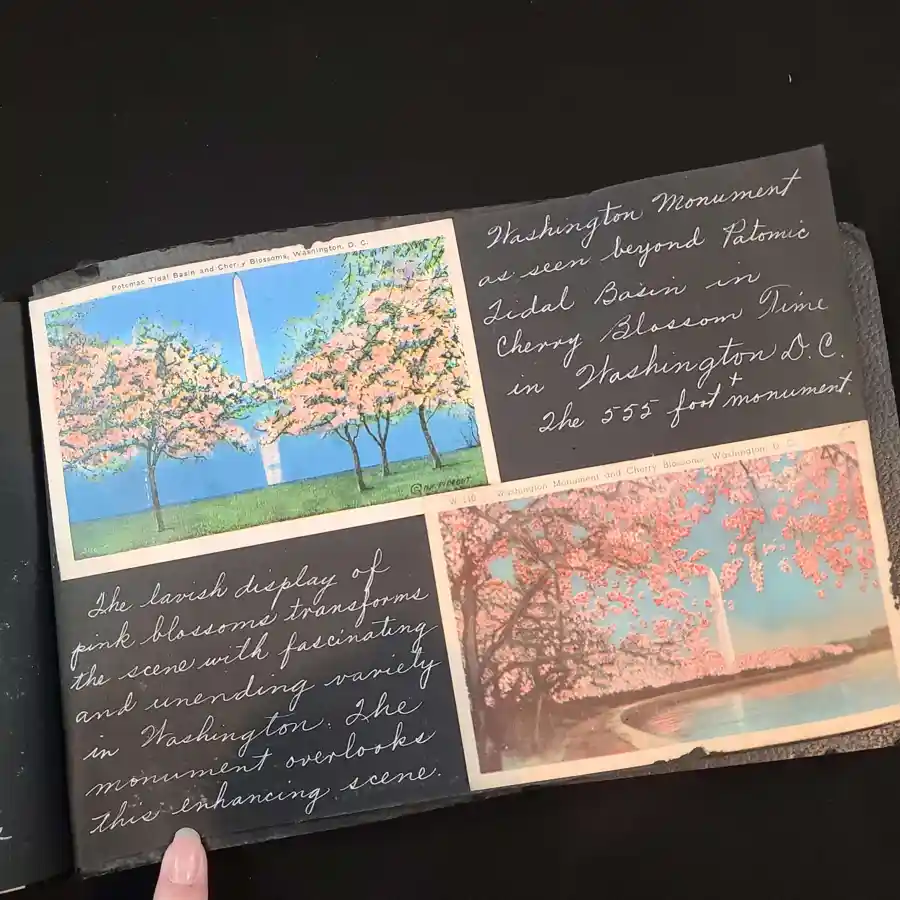 Potomac Tidal Basin and Cherry Blossoms, Washington, D. C.
Washington Monument
as seen beyond Patomic
Tidal Basin in
Cherry Blossom Time
in Washington D.C.
The 555 foot monument.
W 110 Washington Monument and Cherry Blossoms, Washington, D. C.
The lavish display of
pink blossoms transforms
the scene with fascinating
and unending variety
in Washington. The
monument overlooks
this enhancing scene.